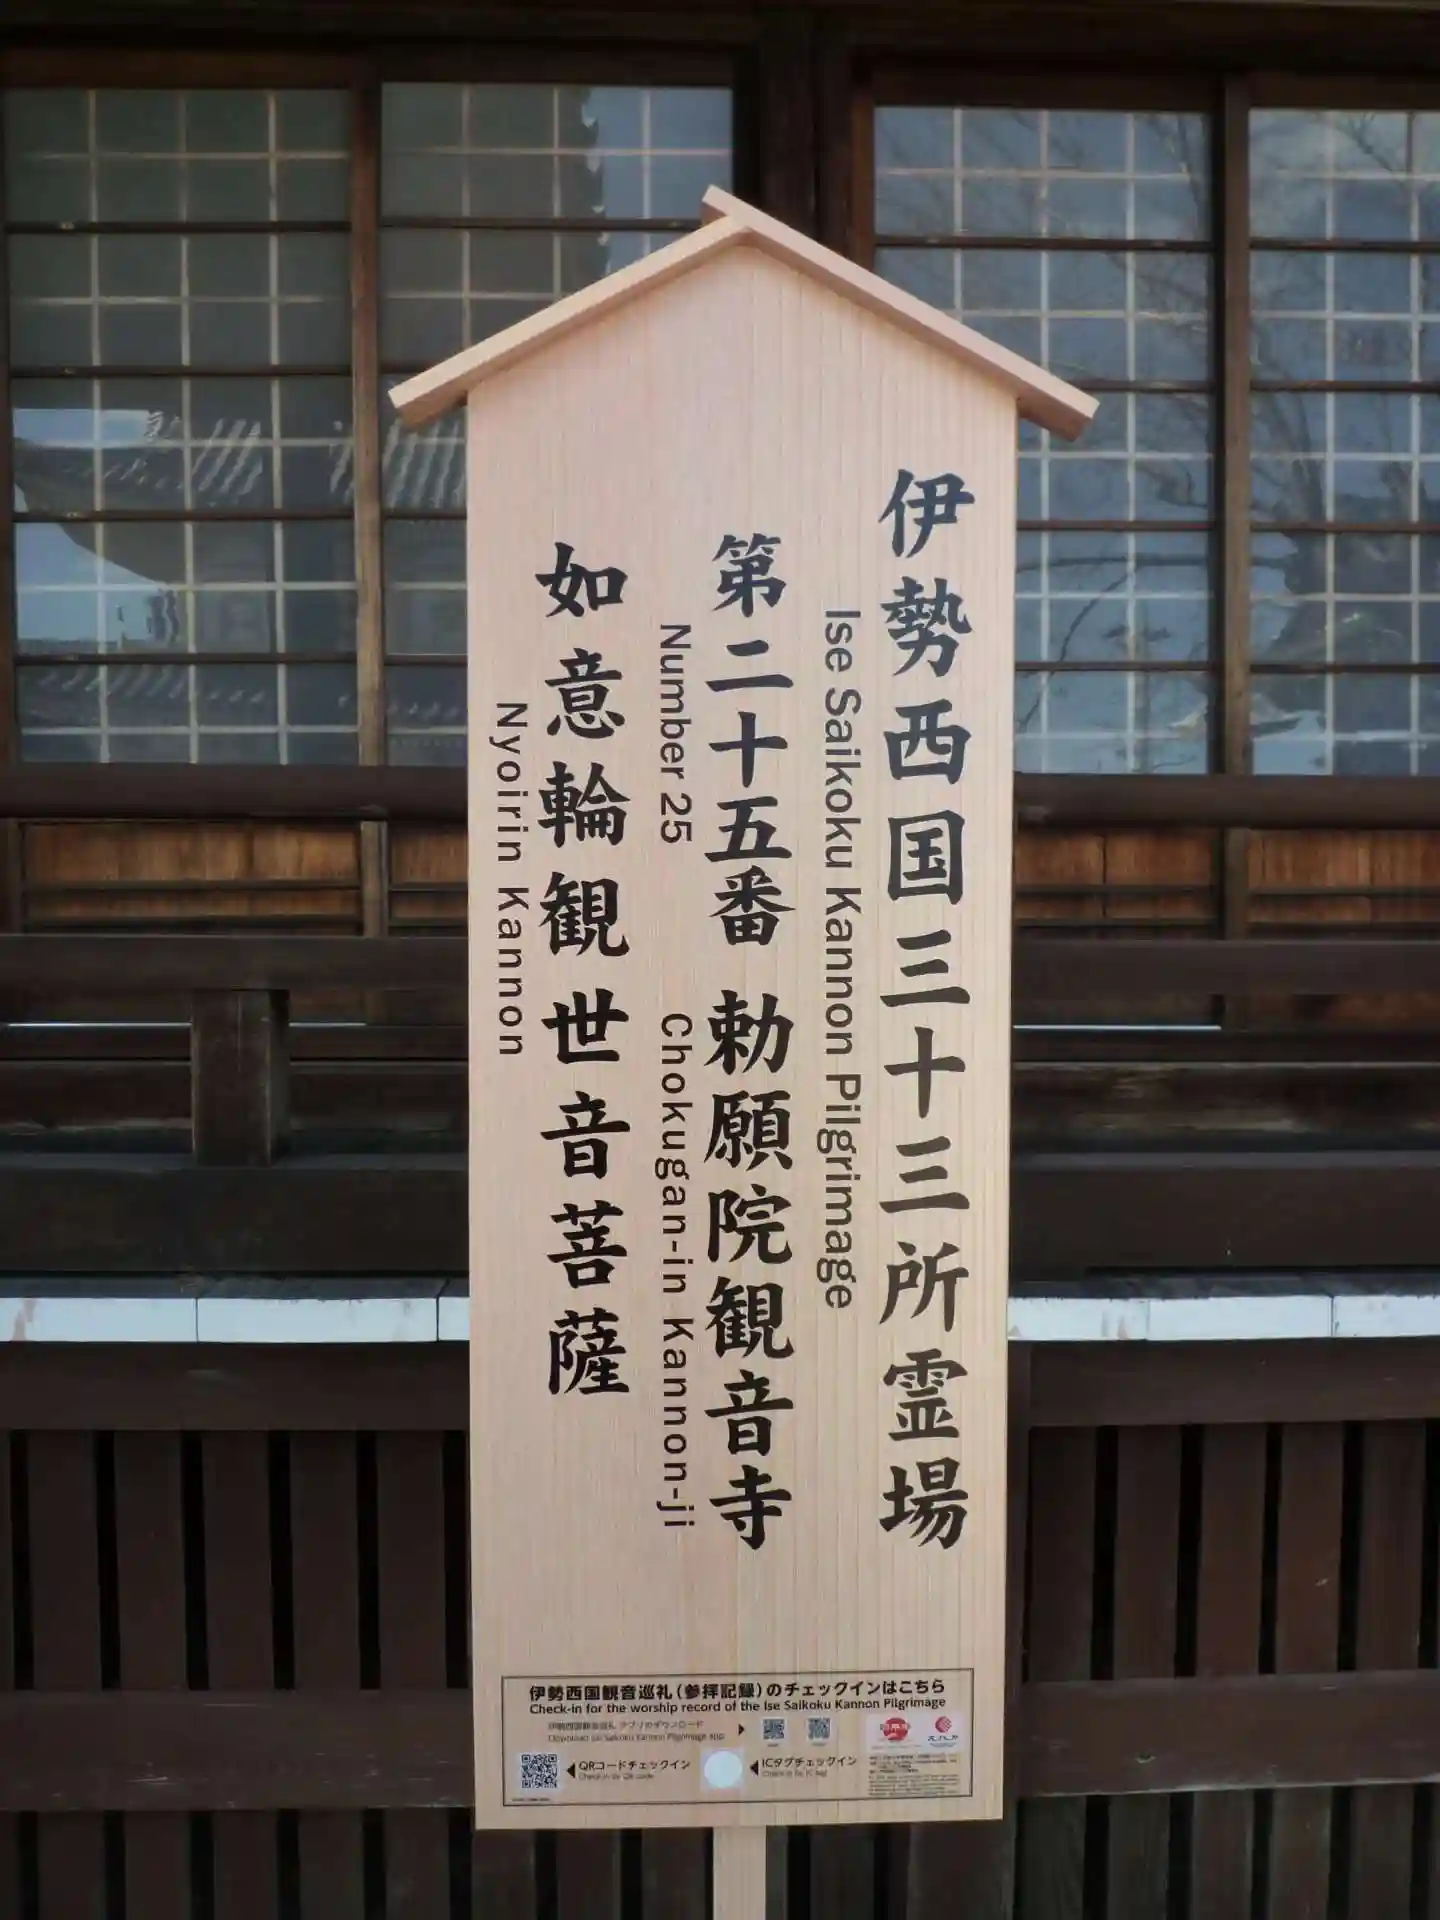 伊勢西国三十三所霊場
Ise Saikoku Kannon Pilgrimage
第二十五番 勅願院観音寺
Number 25 Chokugan-in Kannon-ji
如意輪観世音菩薩
Nyoirin Kannon
伊勢西国観音巡礼(参拝記録)のチェックインはこちら
Check-in for the worship record of the Ise Saikoku Kannon Pilgrimage
伊勢西国観音巡礼 アプリのダウンロード
Download Ise Saikoku Kannon Pilgrimage app
QRコードチェックイン
Check-in by QR code
ICタグチェックイン
Check-in by IC tag